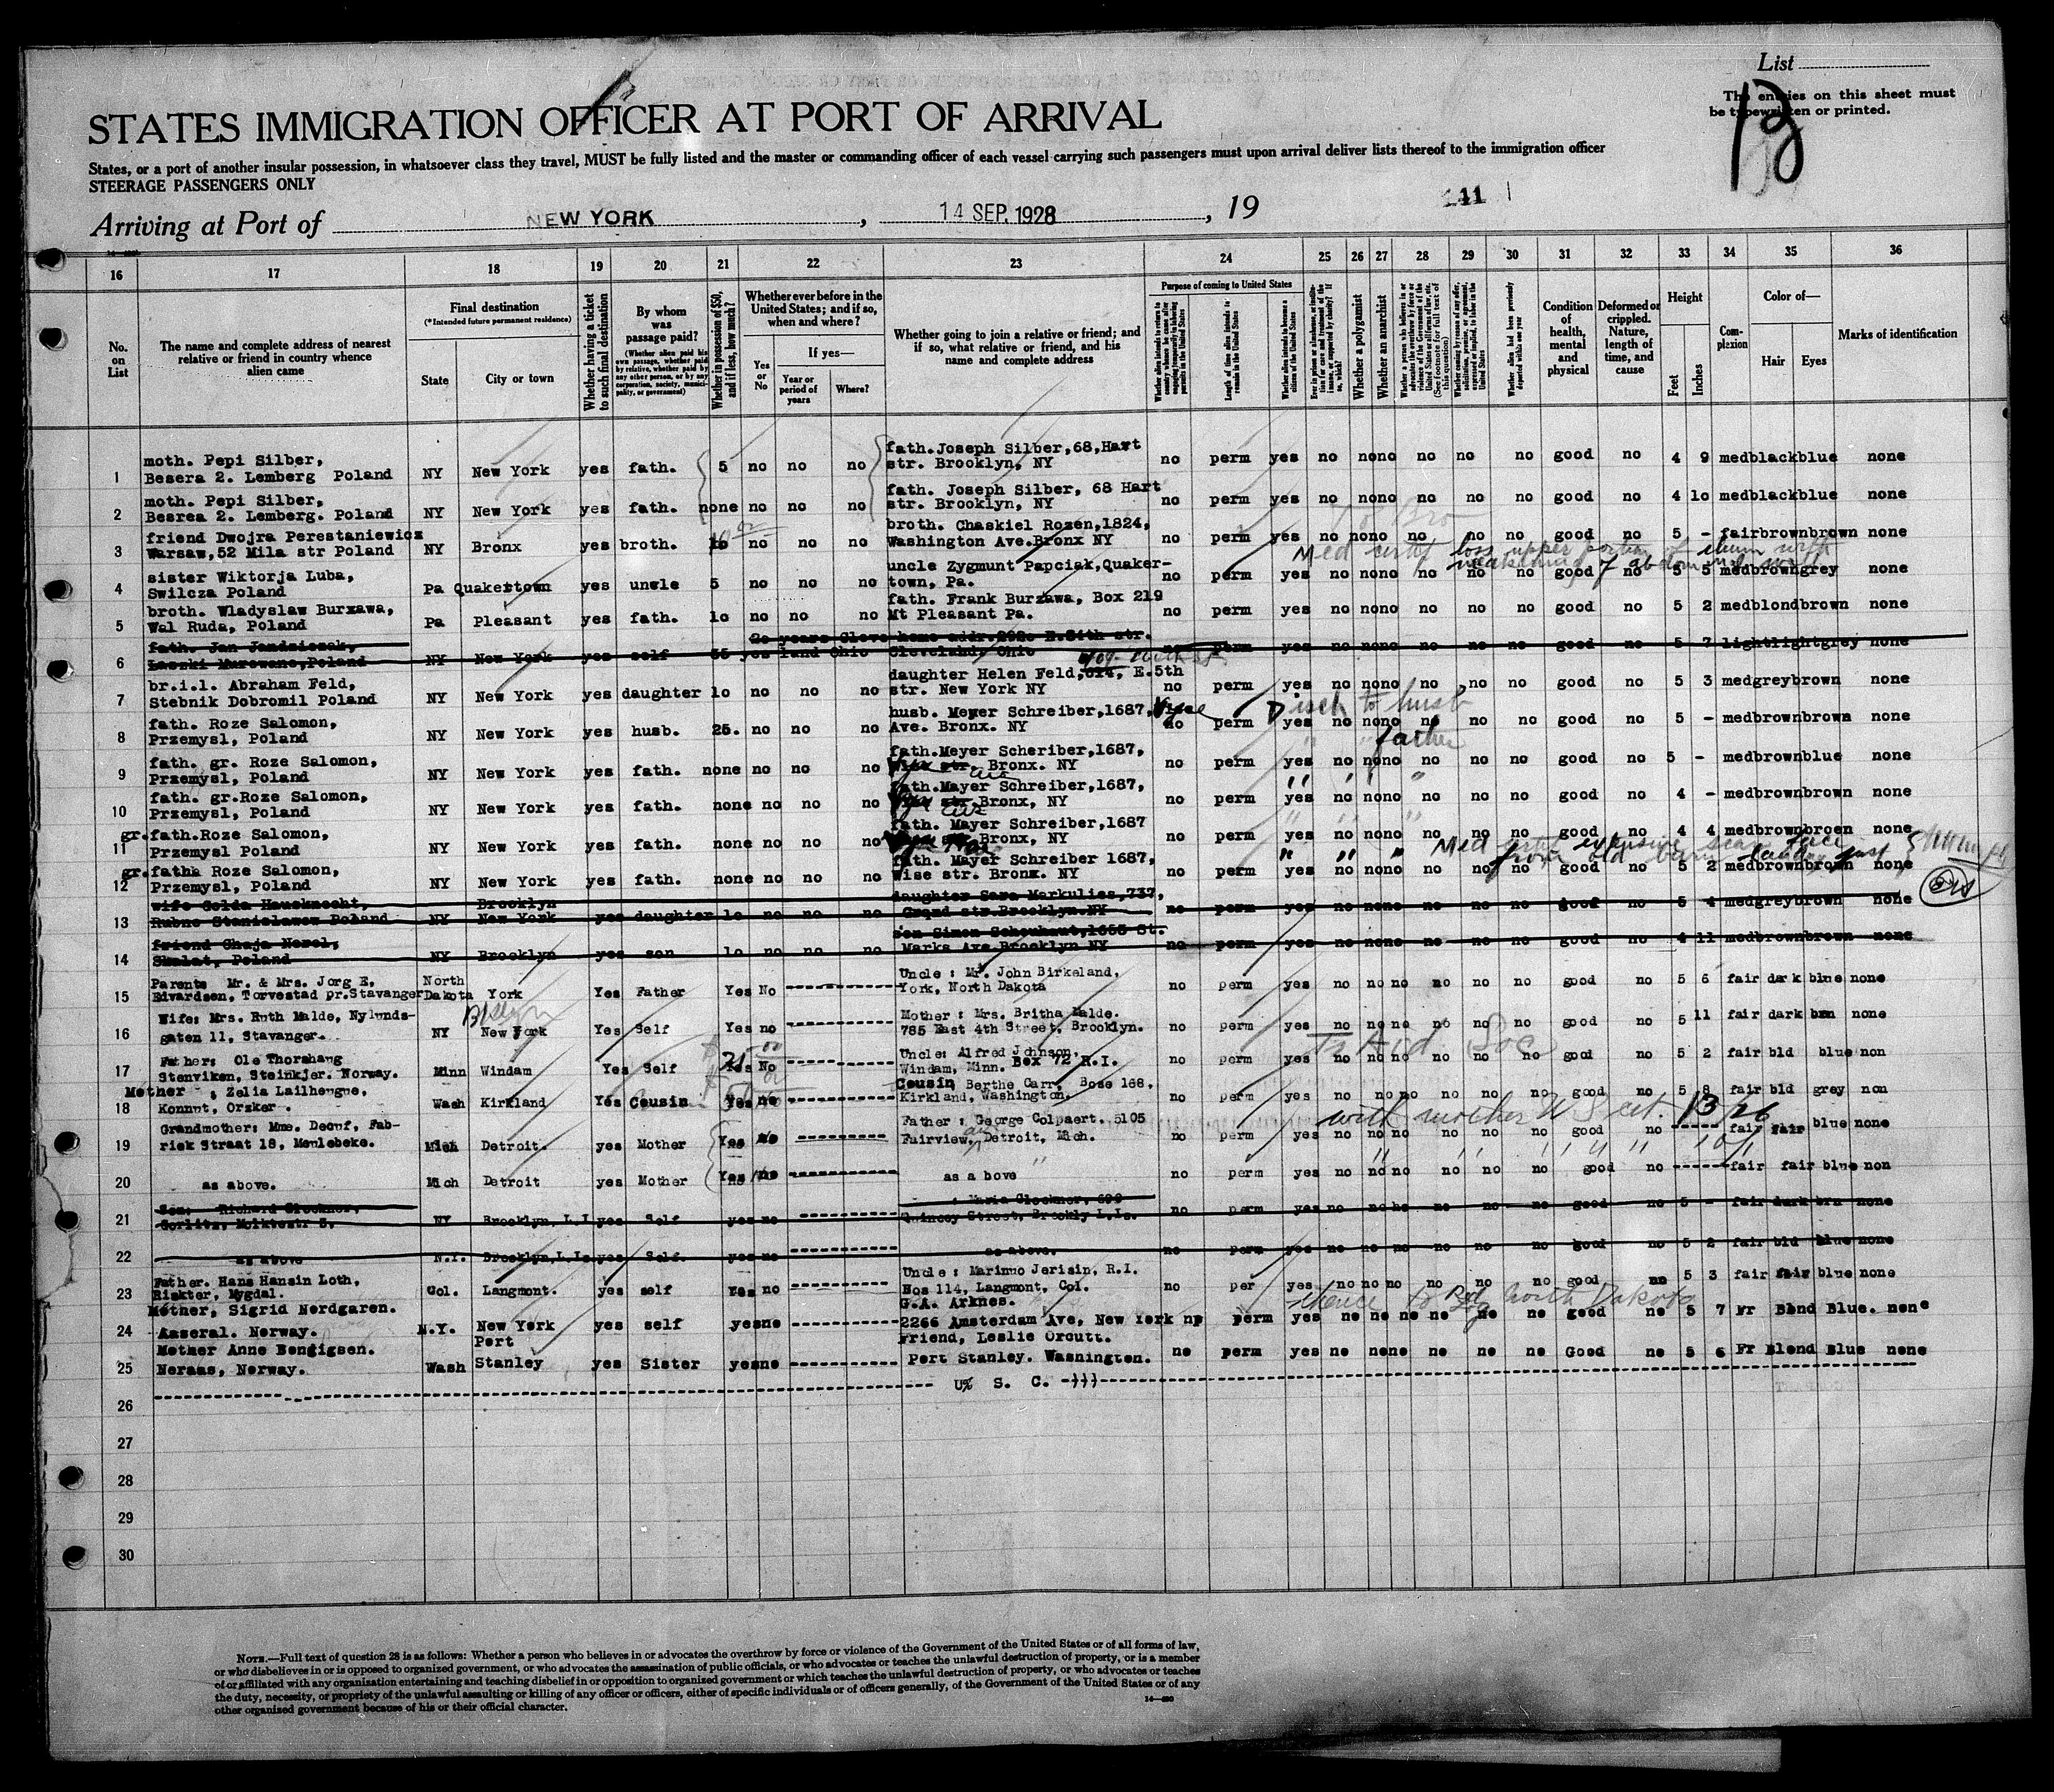 List
The entries on this sheet must
be typewritten or printed.
13
STATES IMMIGRATION OFFICER AT PORT OF ARRIVAL
States, or a port of another insular possession, in whatsoever class they travel, MUST be fully listed and the master or commanding officer of each vessel carrying such passengers must upon arrival deliver lists thereof to the immigration officer
STEERAGE PASSENGERS ONLY
Arriving at Port of NEW YORK, 14 SEP. 1928, 19
16 17 18 19 20 21 22 23 24 25 26 27 28 29 30 31 32 33 34 35 36
No. on List
The name and complete address of nearest relative or friend in country whence alien came
Final destination
(*Intended future permanent residence)
State
City or town
Whether having a ticket to such final destination
By whom was passage paid?
(Whether alien paid his own passage, whether paid by relative, whether paid by any other person, or by any corporation, society, municipality, or government)
Whether in possession of $50, and if less, how much?
Whether ever before in the United States; and if so, when and where?
Yes or No
If yes—
Year or period of years
Where?
Whether going to join a relative or friend; and if so, what relative or friend, and his name and complete address
Purpose of coming to United States
Length of time alien intends to remain in the United States
Whether alien intends to become a citizen of the United States
Whether a polygamist
Whether an anarchist
Condition of health, mental and physical
Deformed or crippled. Nature, length of time, and cause
Height
Feet
Inches
Complexion
Color of—
Hair
Eyes
Marks of identification
moth. Pepi Silber, fath. Joseph Silber, 68, Hart
1 Besera 2. Lemberg Poland NY New York yes father. 5 no no no str. Brooklyn, NY no perm yes no nono no no no good no 4 9 medblackblue none
moth. Pepi Silber, fath. Joseph Silber, 68 Hart
2 Besrea 2. Lemberg. Poland NY New York yes fath. none no no no str. Brooklyn, NY no perm yes no nono no no no good no 4 10 medblackblue none
To Bro
friend Dwojra Perestaniewicz broth. Chaskiel Rozen, 1824,
3 Warsaw, 52 Mila str Poland NY Bronx yes broth. 10 no no no Washington Ave. Bronx NY no perm yes no nono no no no good no 5 - fairbrownbrown none
Med certif loss upper portion of ilium with
weakening of abdominal wall
sister Wiktorja Luba, uncle Zygmunt Papciak, Quaker-
4 Swilcza Poland Pa Quakertown yes uncle 5 no no no town, Pa. no perm yes no nono no no no good no 5 5 medbrowngrey none
broth. Wladyslaw Burzawa, fath. Frank Burzawa, Box 219
5 Wal Ruda, Poland Pa Pleasant yes fath. 1o no no no Mt Pleasant Pa. no perm yes no nono no no no good no 5 2 medblondbrown none
fath. Jan Jandzieszek, 2o years Cleve home addr. 2920 E. 54th str.
6 Laszki Murowane, Poland NY New York yes self 55 yes land Ohio Cleveland, Ohio no perm yes no nono no no no good no 5 7 lightlightgrey none
br.i.l. Abraham Feld, daughter Helen Feld, 624, E. 5th
7 Stebnik Dobromil Poland NY New York yes daughter 1o no no no str. New York NY no perm yes no nono no no no good no 5 3 medgreybrown none
Disch to husb
fath. Roze Salomon, husb. Meyer Schreiber, 1687, Vyse
8 Przemysl, Poland NY New York yes husb. 25. no no no Ave. Bronx. NY no perm yes no nono no no no good no 5 - medbrownbrown none
father
fath. gr. Roze Salomon, fath. Meyer Scheriber, 1687,
9 Przemysl, Poland NY New York yes fath. none no no no Bronx. NY no perm yes no nono no no no good no 5 - medbrownblue none
fath. gr. Roze Salomon, fath. Mayer Schreiber, 1687,
10 Przemysl, Poland NY New York yes fath. none no no no str. Bronx, NY no perm yes no nono no no no good no 4 - medbrownbrown none
gr. fath. Roze Salomon, fath. Mayer Schreiber, 1687
11 Przemysl Poland NY New York yes fath. none no no no Bronx, NY no perm yes no nono no no no good no 4 4 medbrownbroen none
Med certif extensive scar face
from old burn
gr. fatha Roze Salomon, fath. Mayer Schreiber 1687,
12 Przemysl, Poland NY New York yes fath. none no no no Wise str. Bronx. NY no perm yes no nono no no no good no 5 2 medbrownbrown none
wife Golda Hausknecht, Brooklyn daughter Sara Markulies, 737,
13 Rubno Stanislawow Poland NY New York yes daughter 1o no no no Grand str. Brooklyn NY no perm yes no none no no no good no 5 4 medgreybrown none
friend Chaja Nerel, son Simon Schouhaut, 1655 St.
14 Skalat, Poland NY Brooklyn yes son 1o no no no Marks Ave Brooklyn NY no perm yes no none no no no good no 4 11 medbrownbrown none
Parents Mr. & Mrs. Jorg E. North Uncle : Mr. John Birkeland,
15 Edvardsen, Torvestad pr. Stavanger Dakota York Yes Father Yes No York, North Dakota no perm yes no no no no no no good no 5 6 fair dark blue none
Wife: Mrs. Ruth Malde, Nylunds- Bklyn Mother : Mrs. Britha Malde.
16 gaten 11, Stavanger. NY New York Yes Self Yes no 785 East 4th Street, Brooklyn. no perm yes no no no no no no good no 5 11 fair dark brn none
To Aid Soc
Father: Ole Thorshaug Uncle: Alfred Johnson,
17 Stenviken, Steinkjer. Norway. Minn Windam Yes Self Yes No Windam, Minn. Box 72 R.I. no perm yes no no no no no no good no 5 2 fair bld blue non
Mother : Zelia Lailhengue, Cousin Berthe Carr, Bose 168.
18 Konnut, Orzker. Wash Kirkland Yes Cousin Yes no Kirkland, Washington. no perm yes no no no no no no good no 5 8 fair bld grey non
with mother
Grandmother: Mme. Decuf, Fab- Father : George Colpaert. 5105
19 riek Straat 18, Meulebeke. Mich Detroit. yes Mother Yes no Fairview, Detroit, Mich. no perm yes no no no no no no good no fair fair blue none
20 as above. Mich Detroit yes Mother Yes no as a bove no perm yes no no no no no no good no fair fair blue non
Son: Richard Glockner, : Maria Glockner, 699
21 Gorlitz, Molktestr 5, NY Brooklyn, L.I yes Self yes no Quincey Street, Brookly L.Is. no perm yes no no no no no no good no 5 - fair dark brn none
22 as above N.Y. Brooklyn, L.Is yes Self. yes no as above. no perm yes no no no no no no good no 5 2 fair bld blue none
Father. Hans Hansin Loth, Uncle : Marinuo Jerisin, R.I.
23 Riskter, Mygdal. Col. Langmont. yes self Yes no Bos 114, Langmont, Col. no per yes no no no no no no good no 5 3 fair fair blue none
thence to North Dakota
Mother, Sigrid Nordgaren. G.A. Arknes.
24 Aaseral. Norway. N.Y. New York yes self yesno 2266 Amsterdam Ave, New York no perm yes no no no no no no good no 5 7 Fr Blnd Blue. none
Mother Anne Bengigsen. Port Friend, Leslie Orcutt.
25 Neraas, Norway. Wash Stanley yes Sister yesno Port Stanley. Washington. no perm yes no none no no no Good no 5 6 Fr Blond Blue none
U% S. C. -)))-
26
27
28
29
30
NOTE.—Full text of question 28 is as follows: Whether a person who believes in or advocates the overthrow by force or violence of the Government of the United States or of all forms of law,
or who disbelieves in or is opposed to organized government, or who advocates the assassination of public officials, or who advocates or teaches the unlawful destruction of property, or is a member
of or affiliated with any organization entertaining and teaching disbelief in or opposition to organized government or which teaches the unlawful destruction of property, or who advocates or teaches
the duty, necessity, or propriety of the unlawful assaulting or killing of any officer or officers, either of specific individuals or of officers generally, of the Government of the United States or of any
other organized government because of his or their official character.